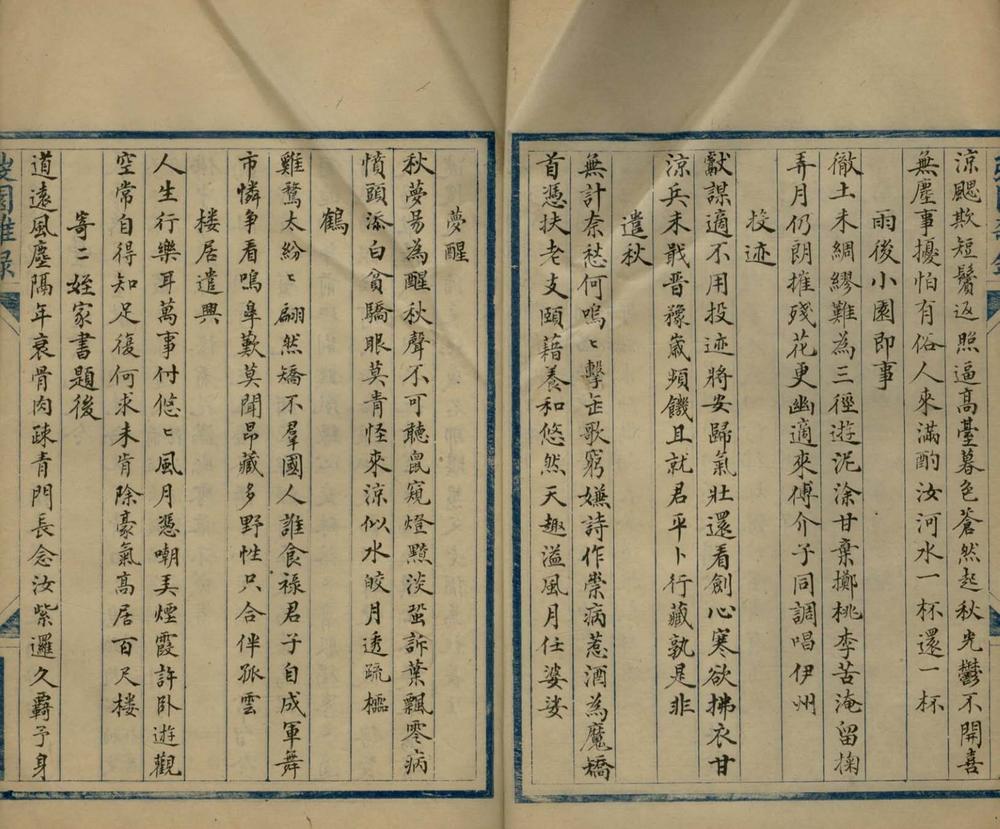 涼颸欺短鬢返照逼高臺暮色蒼然起秋光鬱不開喜
無塵事擾怕有俗人來滿酌汝河水一杯還一杯
雨後小園即事
徹土未綢繆難為三徑遊泥涂甘棄擲桃李苦淹留掬
弄月仍朗摧殘花更幽適來傅介子同調唱伊州
投迹
獻謀適不用投迹將安歸氣壯還看劍心寒欲拂衣甘
涼兵未戢晋豫歲頻饑且就君平卜行藏孰是非
遣秋
無計奈愁何嗚〻擊缶歌窮嫌詩作祟病惹酒為魔橋
首憑扶老支頤藉養和悠然天趣溢風月任婆娑
夢醒
秋夢易為醒秋聲不可聽鼠窺燈黯淡蛩訴葉飄零病
憤頭添白貧驕眼莫青怪來涼似水皎月透疏櫺
鶴
雞鶩太紛〻翩然矯不羣國人誰食祿君子自成軍舞
市憐爭看鳴皋歎莫聞昂藏多野性只合伴孤雲
楼居遣興
人生行樂耳萬事付悠〻風月憑嘲美煙霞許臥遊觀
空常自得知足復何求未肯除豪氣高居百尺楼
寄二姪家書題後
道遠風塵隔年衰骨肉疎青門長念汝紫邏久羈予身